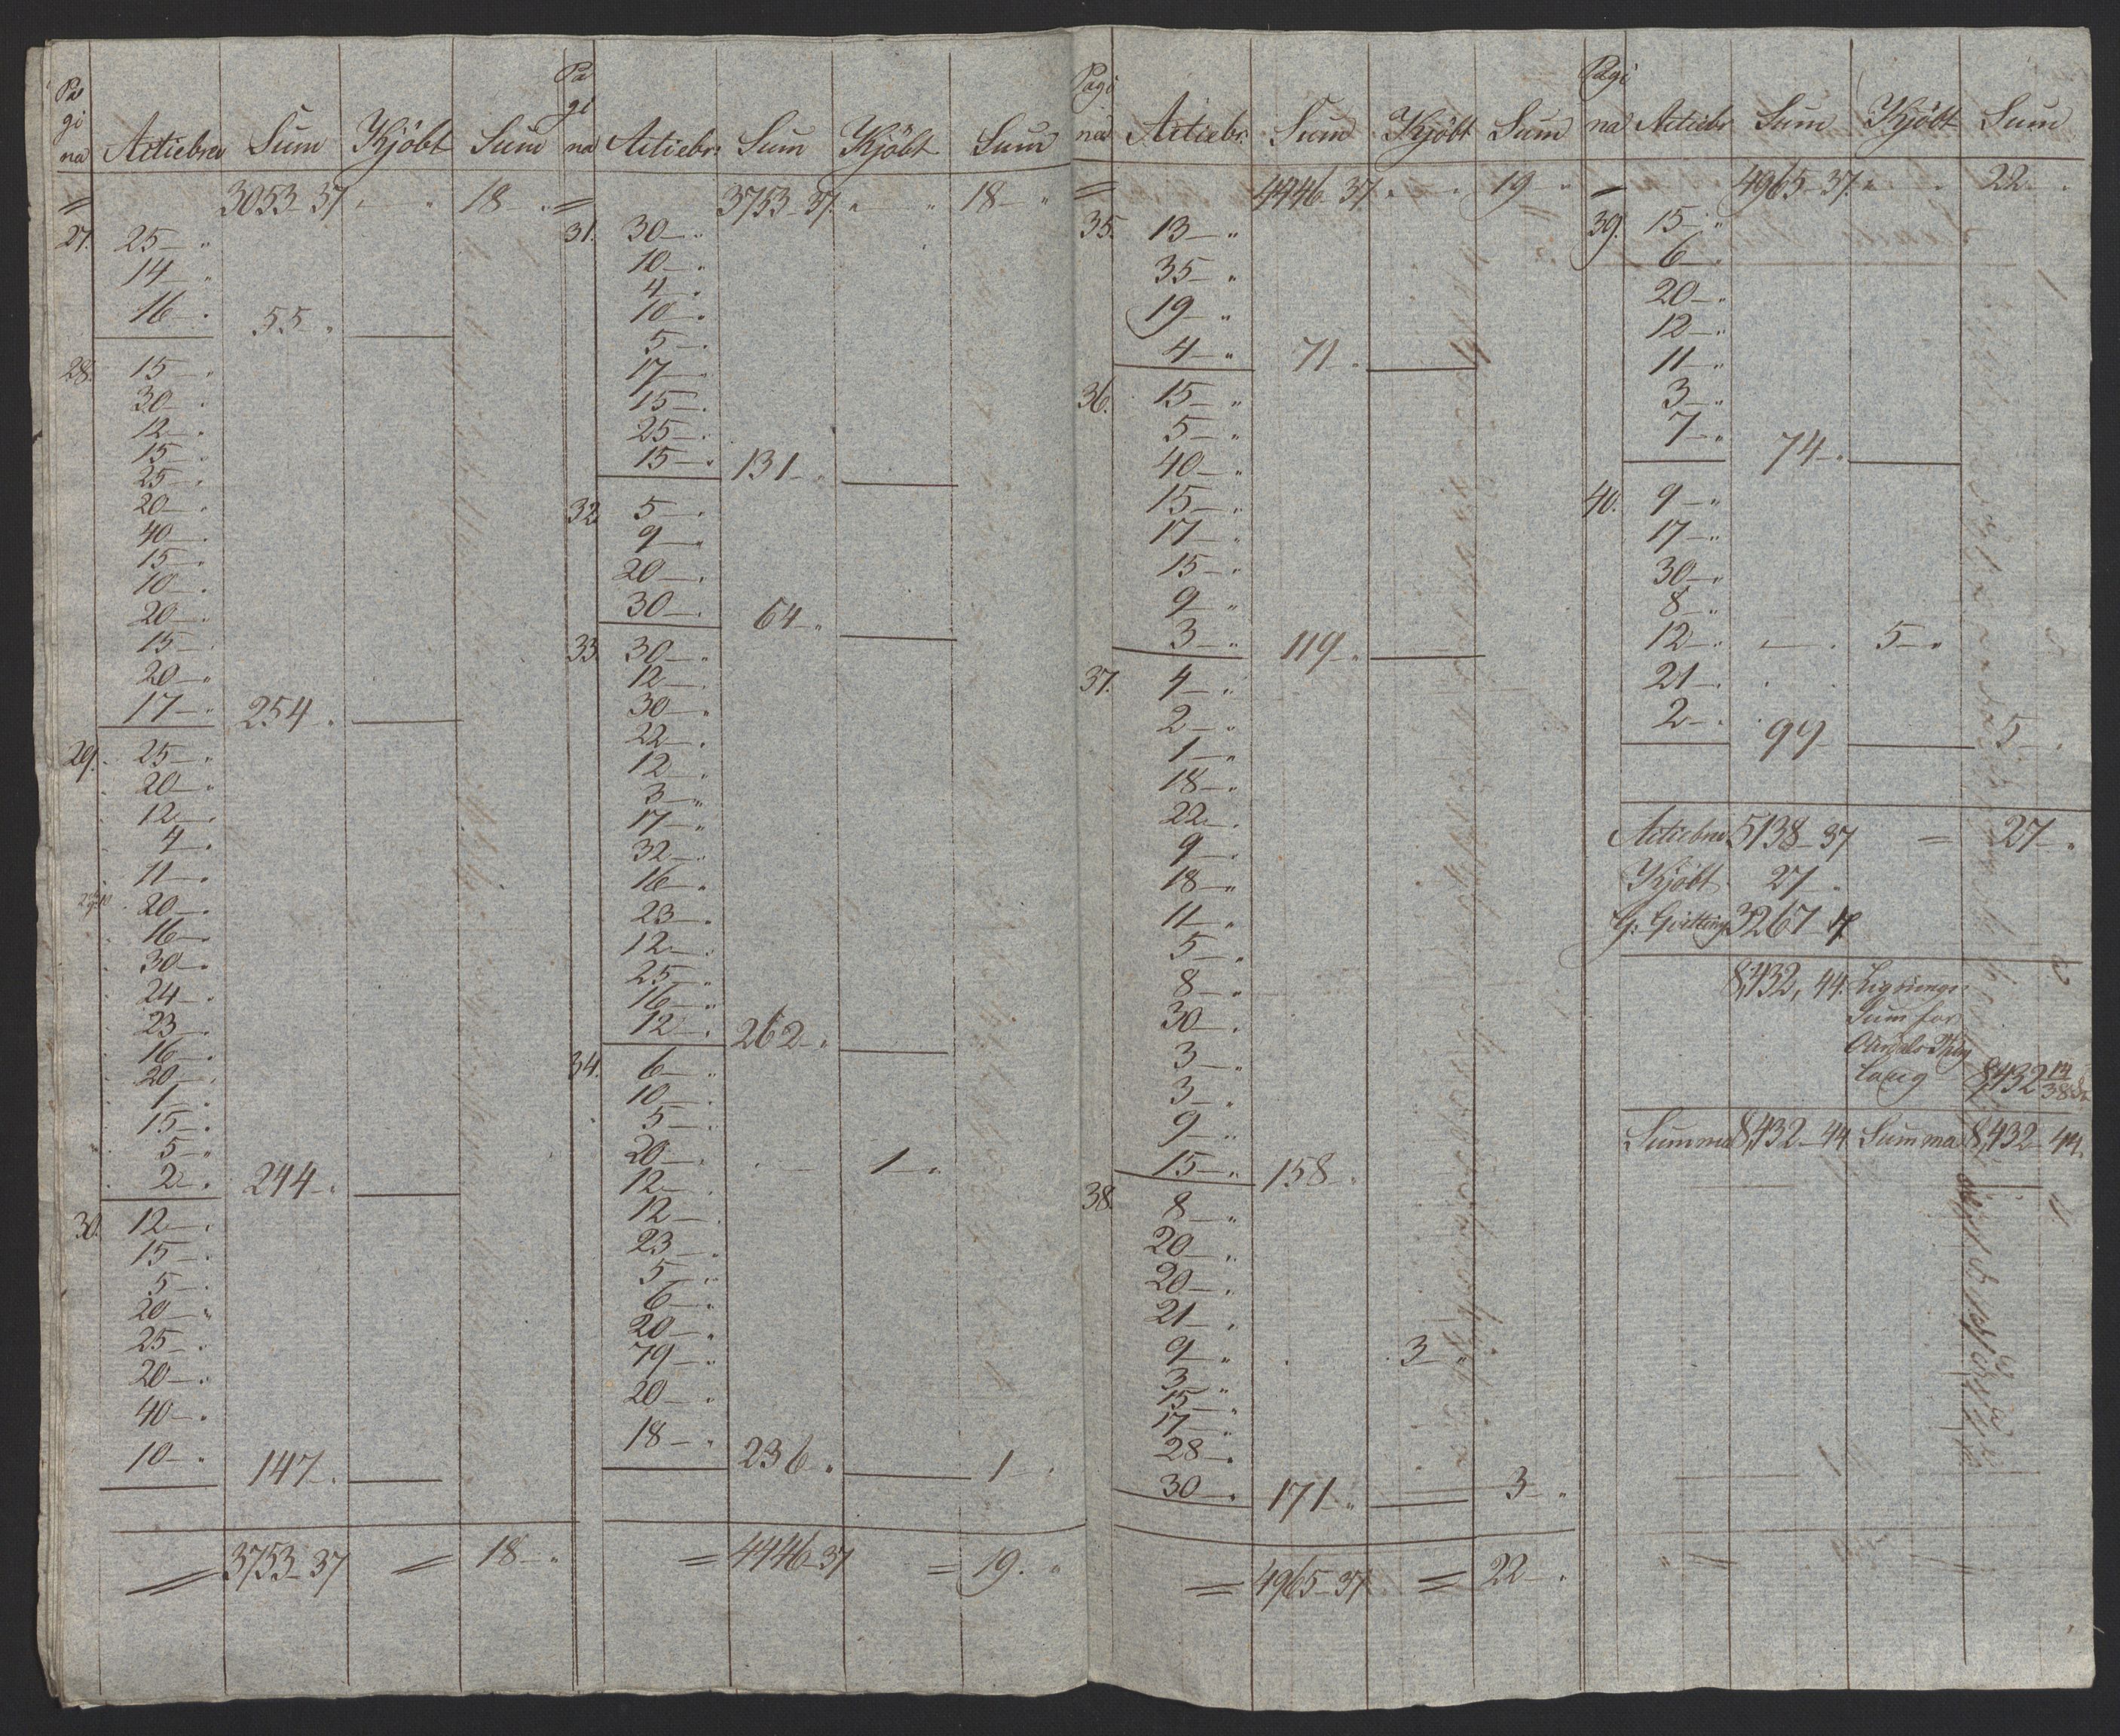 Pa
gi
na Actiebrev Sum Kjöbt Sum
〃 3053-37 〃 — 〃 18 〃
27. 25-〃
14-〃
16-〃 55〃
28. 15-〃
30-〃
12-〃
15-〃
25-〃
20-〃
40-〃
15-〃
10-〃
20-〃
15-〃
20-〃
17-〃 254〃
29. 25-〃
20-〃
12-〃
4-〃
11-〃
20-〃
16-〃
30-〃
24-〃
23-〃
16-〃
20-〃
1-〃
15-〃
5-〃
2-〃 244-〃
30. 12-〃
15-〃
5-〃
20-〃
25-〃
20-〃
40-〃
10-〃 147-〃
= 3753-37 = 18-〃
Pa
gi
na Actiebr: Sum Kjöbt Sum
= 3753-37. 〃 — 〃 18-〃
31. 30-〃
10-〃
4-〃
10-〃
5-〃
17-〃
15-〃
25-〃
15-〃 131-〃
32 5-〃
9-〃
20-〃
30-〃 64-〃
33. 30-〃
12-〃
30-〃
22-〃
12-〃
3-〃
17-〃
32-〃
16-〃
23-〃
12-〃
25-〃
16-〃
12-〃 262-〃
34. 6-〃
10-〃
5-〃
20-〃 1-〃
12-〃
12-〃
23-〃
5-〃
6-〃
20-〃
79-〃
20-〃
18-〃 236〃 1-〃
= 4446-37 = 19.〃
Pagi
na Actiebr: Sum Kjöbt Sum
= 4446-37. 〃 — 〃 19-〃
35. 13-〃
35-〃
19-〃
4-〃 71〃
36. 15-〃
5-〃
40-〃
15-〃
17-〃
15-〃
9-〃
3-〃 119-〃
37. 4-〃
2-〃
1-〃
18-〃
22-〃
9-〃
18-〃
11-〃
5-〃
8-〃
30-〃
3-〃
3-〃
9-〃
15-〃 158〃
38. 8-〃
20-〃
20-〃
21-〃
9-〃 3-〃
3-〃
15-〃
17-〃
28-〃
30-〃 171-〃 3-〃
= 4965-37 = 22-〃
Pagi
na Actiebr Sum Kjöbt Sum
= 4965-37. 〃 — 〃 22-〃
39. 15-〃
6-〃
20-〃
12-〃
11-〃
3-〃
7-〃 74-〃
40. 9-〃
17-〃
30-〃
8-〃
12-〃 5-〃
21-〃
2-〃 99- 5-〃
Actiebrev 5138-37 = 27-〃
Kjöbt 27〃
3267-7
8,432, 44. Lignings
Sum for
laug 8,432
Summa 8,432-44 Summa 8,432-44.